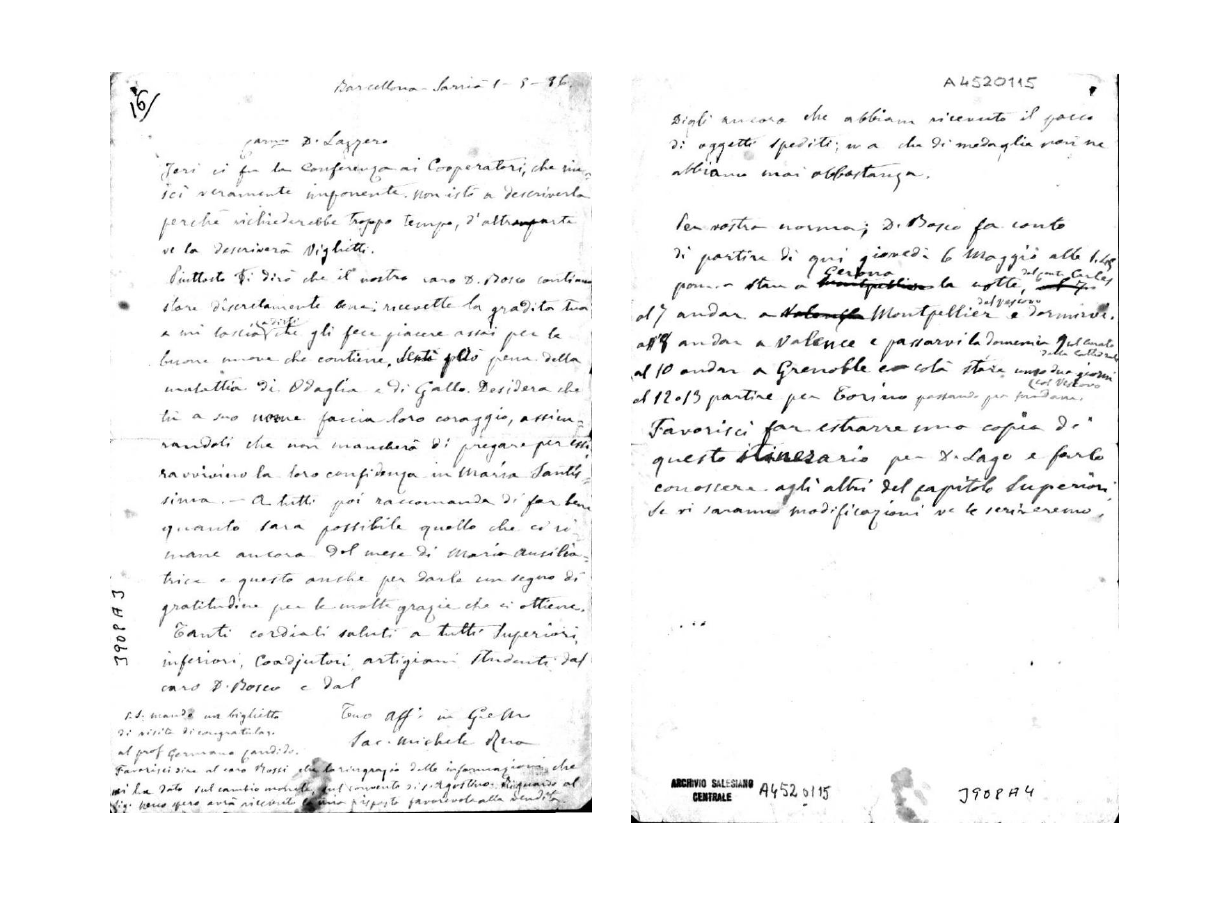 16/
Barcellona-Sarrià 1-5-86.
Carmo D. Lazzero
Jeri ci fu la Conferenza ai Cooperatori, che riu-
scì veramente imponente. Non istò a descriverla
perchè richiederebbe troppo tempo, d'altra parte
ve la descriverà Viglietti.
Piuttosto ti dirò che il nostro caro D. Bosco continua
stare discretamente bene; ricevette la gradita tua
e mi lascia dirti che gli fece piacere assai per le
buone nuove che contiene. Sentì però pena della
malattia di Odaglia e di Gallo. Desidera che
tu a suo nome faccia loro coraggio, assicu-
randoli che non mancherà di pregare per essi
ravvivino la loro confidenza in Maria Santis-
sima. - A tutti poi raccomanda di far bene
quanto sarà possibile quello che ci ri
mane ancora del mese di Maria Ausilia-
trice e questo anche per darle un segno di
gratitudine per le molte grazie che ci ottiene.
Tanti cordiali saluti a tutti Superiori,
inferiori, Coadjutori, artigiani studenti dal
caro D. Bosco e dal
Tuo Aff. in G. e M.
Sac. Michele Rua
P.S. manda un biglietto
di visita di congratulaz.
al prof. Germano Candido.
Favorisci dire al caro Rossi che lo ringrazio delle informazioni che
mi ha dato sul cambio monete sul convento di S. Agostino. Riguardo al
Sig. spero avrà ricevuto una risposta favorevole alla vendita
J908A3
A4520115
Digli ancora che abbiam ricevuto il pacco
di oggetti spediti; ma che di medaglie non ne
abbiamo mai abbastanza.
Per vostra norma; D. Bosco fa conto
di partire di qui giovedì 6 Maggio alle
Gerona la notte,
al 7 andar a Montpellier e dormirvi. dal Vescovo
all'8 andar a Valence e passarvi la domenica 9 dal curato della Cattedrale
al 10 andar a Grenoble e colà stare uno o due giorni (col Vescovo
al 12 o 13 partire per Torino passando per
Favorisci far estrarre una copia di
questo itinerario per D. Lago e farlo
conoscere agli altri del Capitolo Superiore.
Se vi saranno modificazioni ve le scriveremo.
ARCHIVIO SALESIANO
CENTRALE
A4520115
J908A4